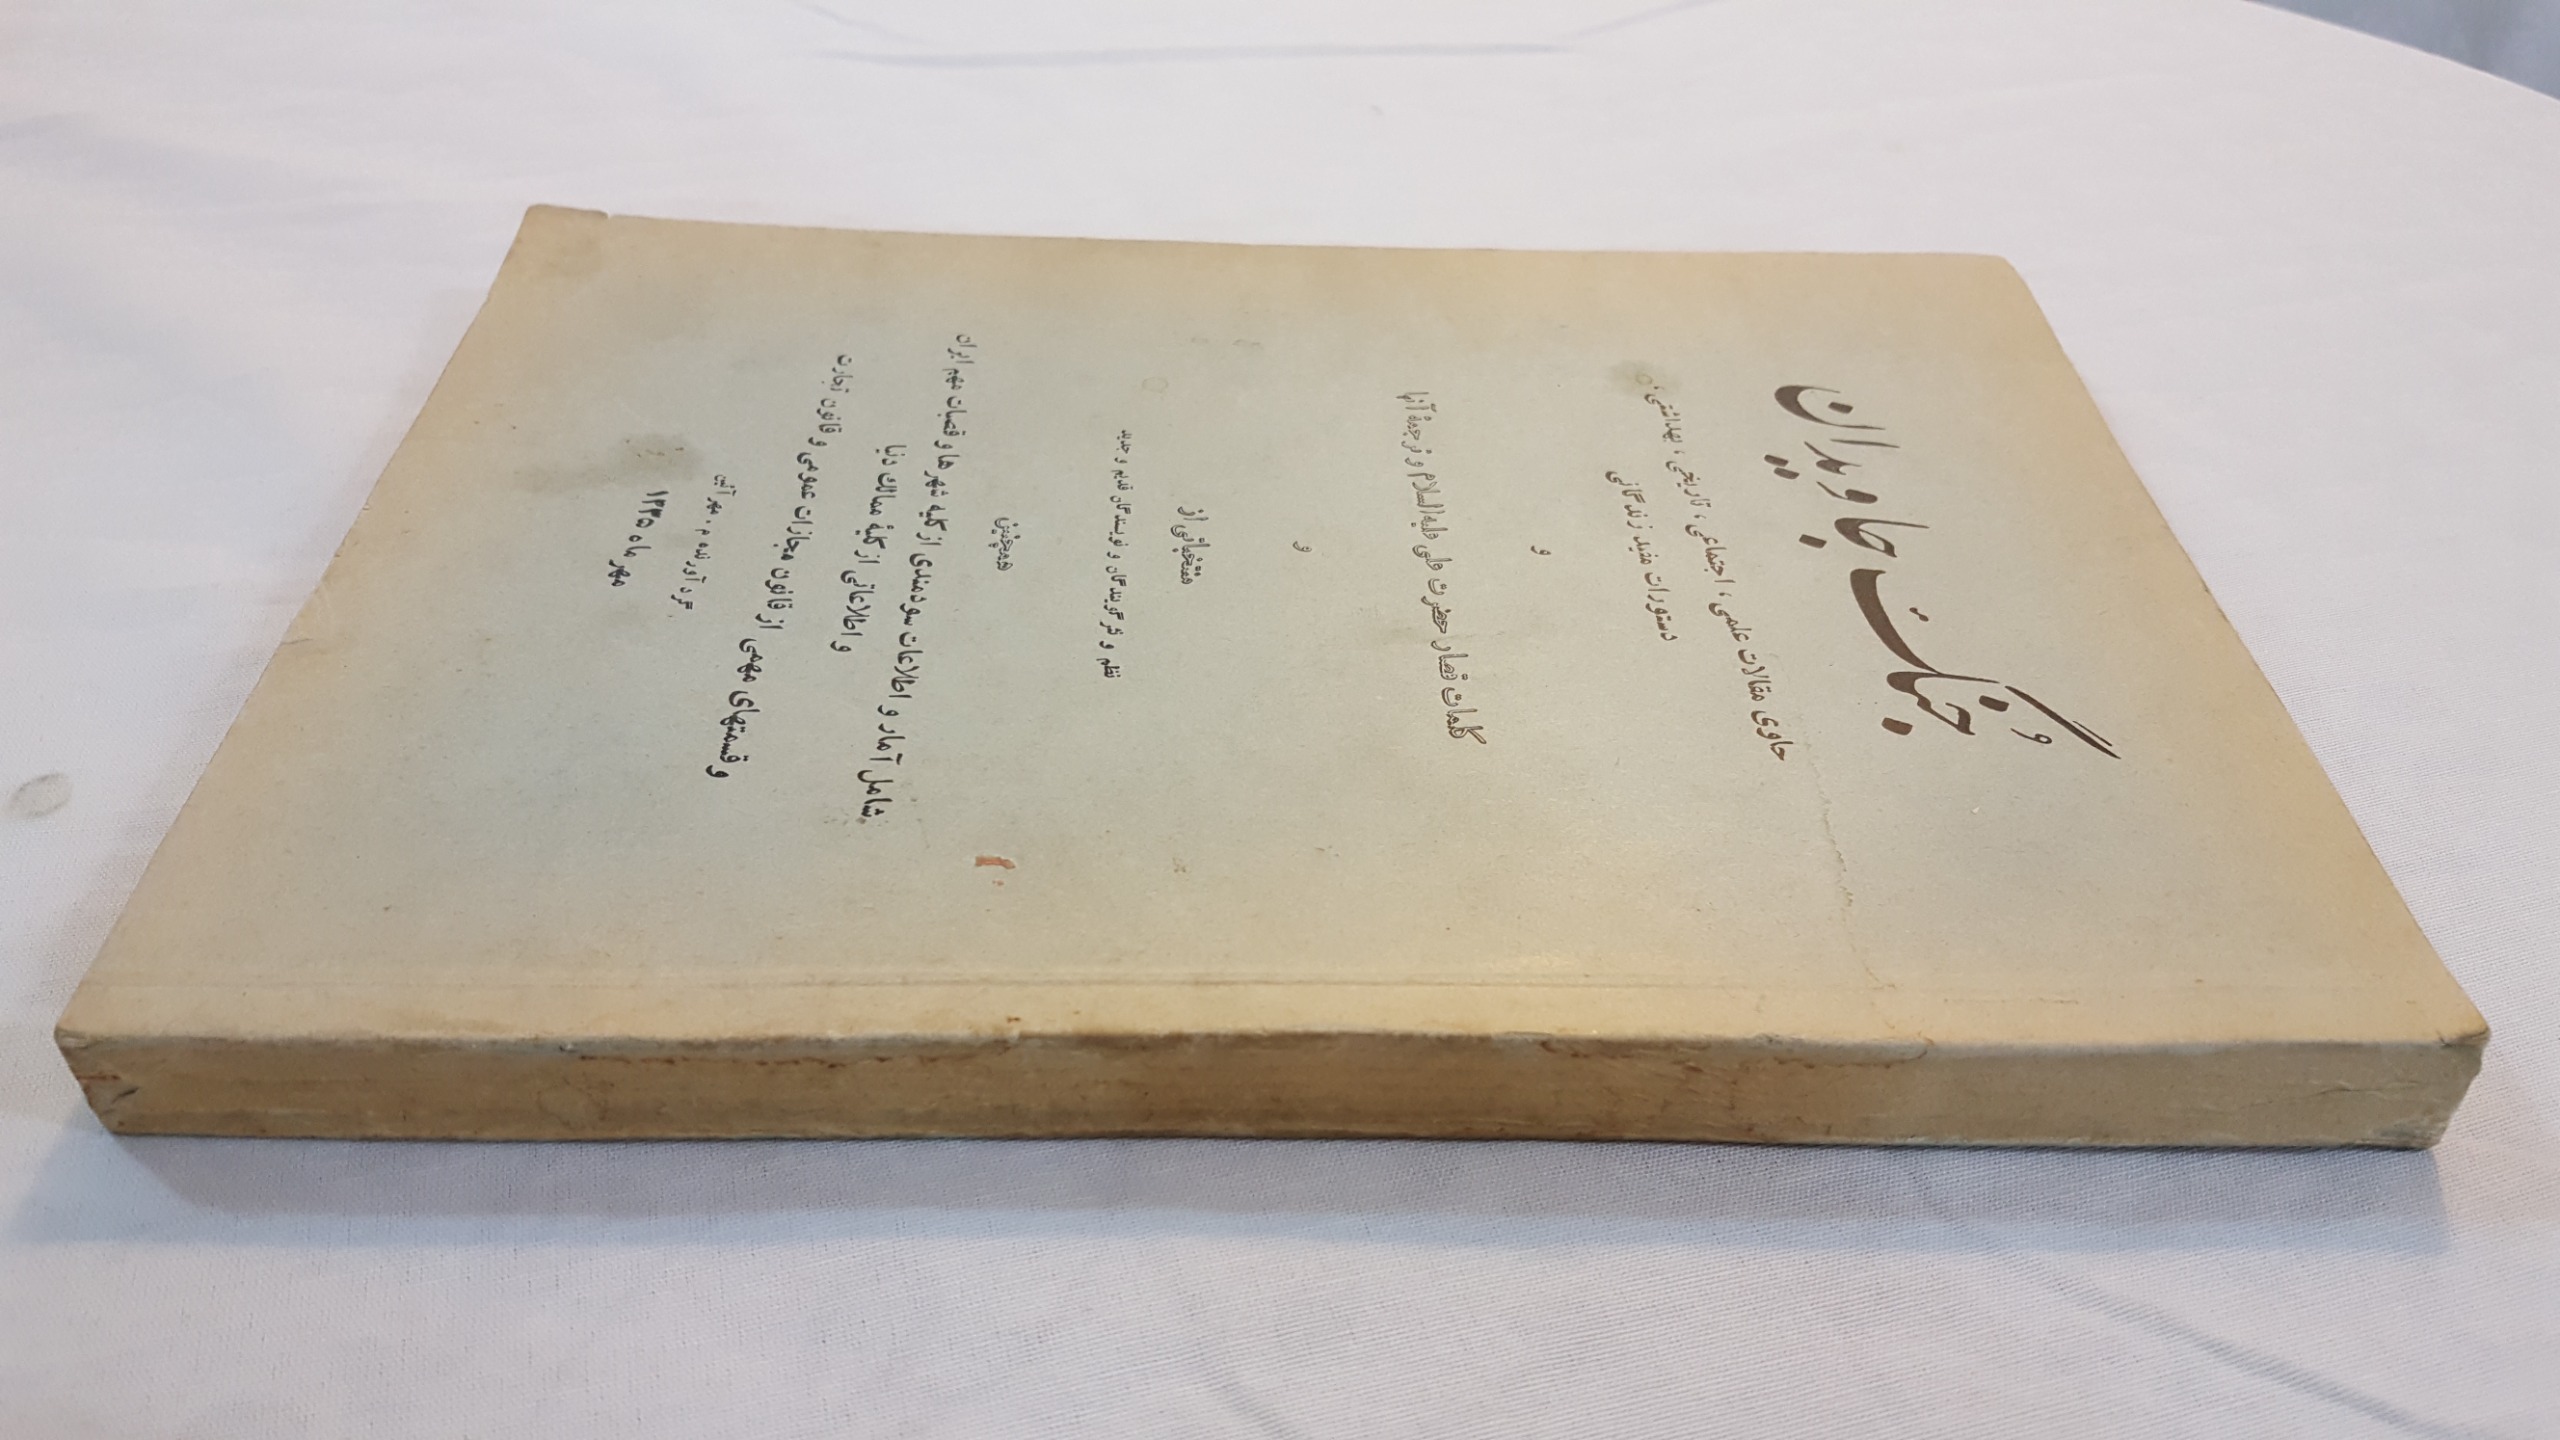 جنگ جاویدان
حاوی مقالات علمی ، اجتماعی ، تاریخی ، بهداشتی ،
دستورات مفید زندگانی
و
کلمات قصار حضرت علی علیه السلام و ترجمهٔ آنها
و
منتخباتی از
نظم و نثر گویندگان و نویسندگان قدیم و جدید
همچنین
شامل آمار و اطلاعات سودمندی از کلیهٔ شهرها و قصبات مهم ایران
و اطلاعاتی از کلیهٔ ممالک دنیا
و قسمتهای مهمی از قانون مجازات عمومی و قانون تجارت
گرد آورنده م . مهر آئین
مهر ماه ۱۳۳۵